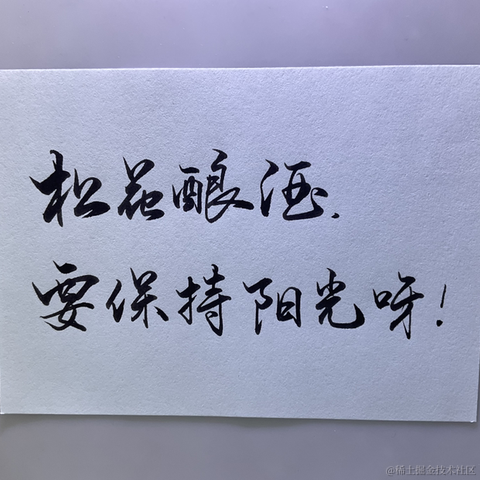 松花酿酒.
要保持阳光呀!
@稀土掘金技术社区